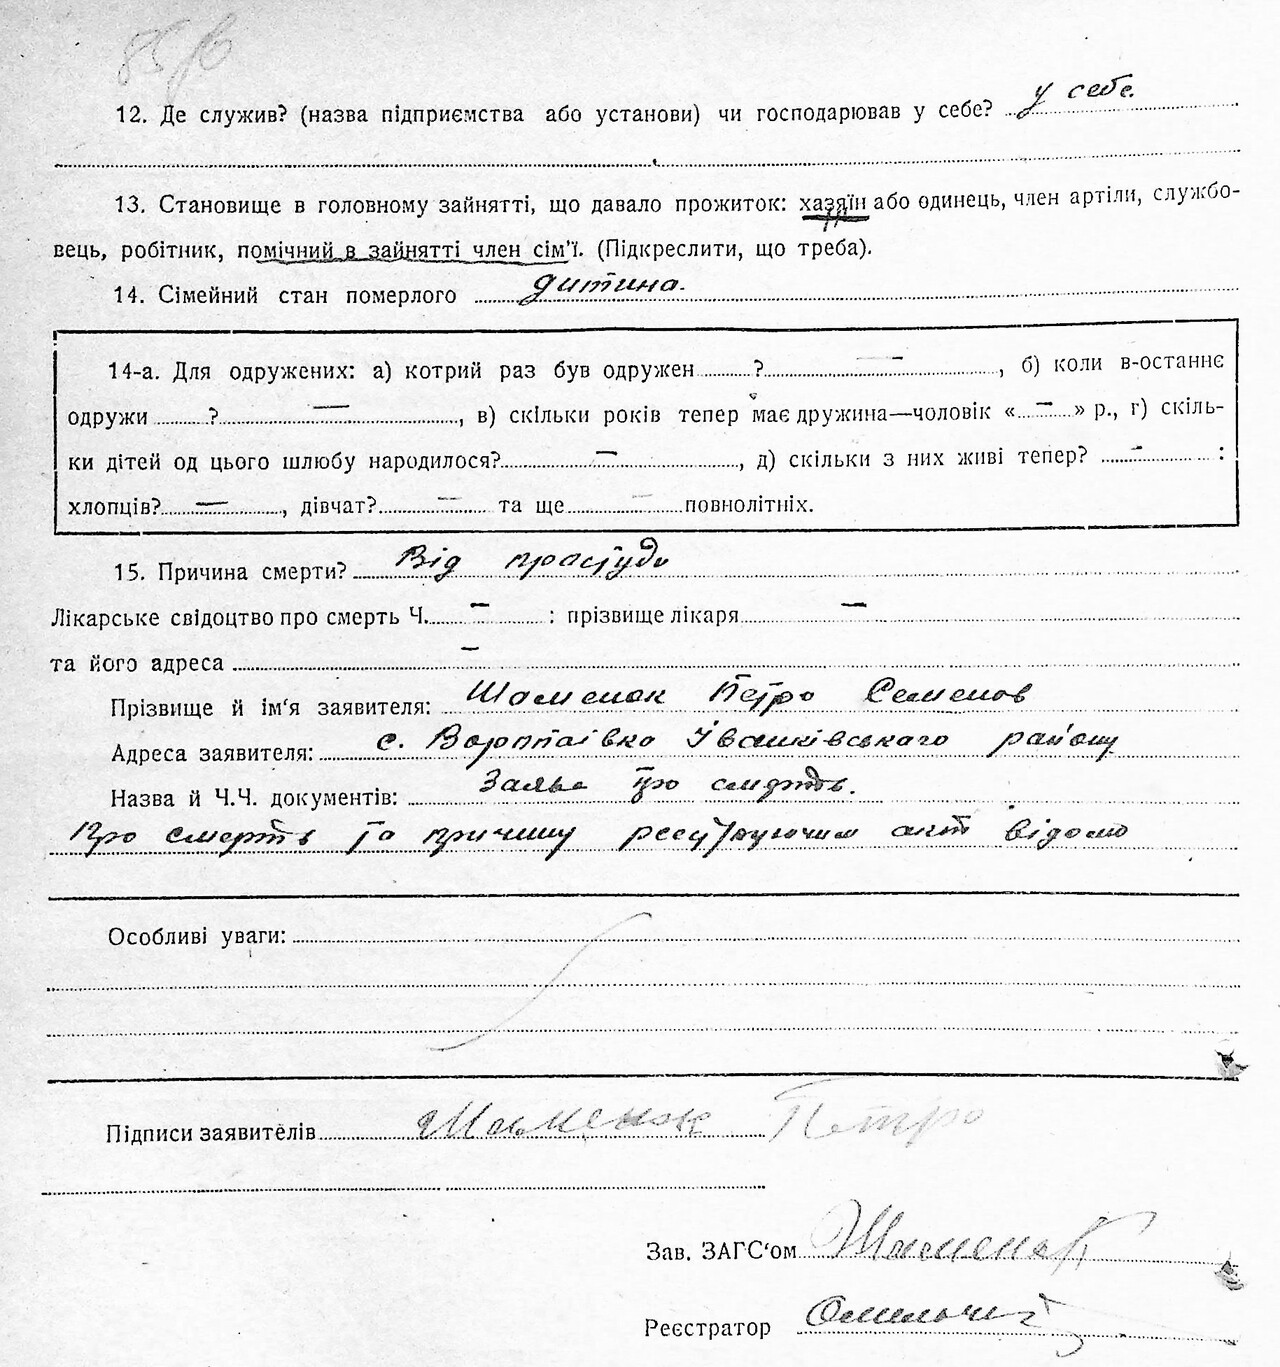 12. Де служив? (назва підприємства або установи) чи господарював у себе? у себе.
13. Становище в головному зайнятті, що давало прожиток: хазяїн або одинець, член артіли, службо-
вець, робітник, помічний в зайнятті член сім'ї. (Підкреслити, що треба).
14. Сімейний стан померлого дитина.
14-а. Для одружених: а) котрий раз був одружен ? —, б) коли в-останнє
одружи ? —, в) скільки років тепер має дружина—чоловік «—» р., г) скіль-
ки дітей од цього шлюбу народилося? —, д) скільки з них живі тепер? — :
хлопців? —, дівчат? — та ще — повнолітніх.
15. Причина смерти? Від простуди
Лікарське свідоцтво про смерть Ч. — : прізвище лікаря —
та його адреса —
Прізвище й ім'я заявителя: Шаменок Петро Семенов
Адреса заявителя: с. Воропаівка Івашківського району
Назва й Ч.Ч. документів: Заява про смерть.
Про смерть та причину акт відомо
Особливі уваги:
Підписи заявителів Шаменок Петро
Зав. ЗАГС'ом Шаменок
Реєстратор